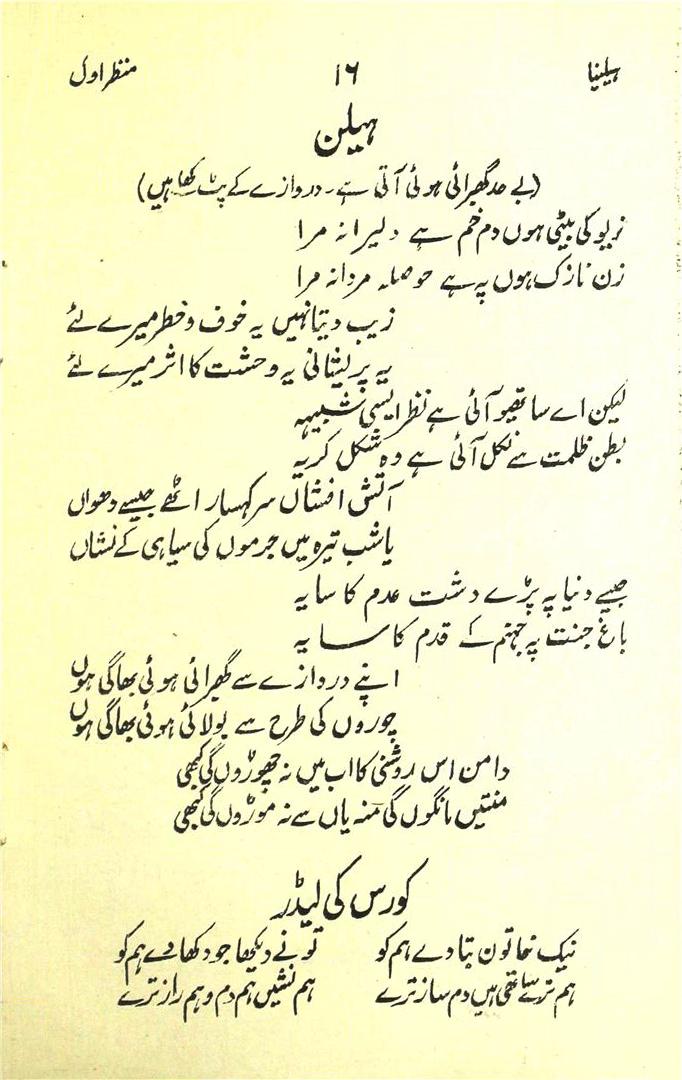 ہیلنیا ۱۶ منظر اول
ہیلن
(بے حد گھبرائی ہوئی آتی ہے۔ دروازے کے پٹ کھلے ہیں)
زیو کی بیٹی ہوں دم خم ہے دلیرانہ مرا
زن نازک ہوں پہ ہے حوصلہ مردانہ مرا
زیب دیتا نہیں یہ خوف و خطر میرے لئے
یہ پریشانی یہ وحشت کا اثر میرے لئے
لیکن اے ساتھیو آئی ہے نظر ایسی شبیہہ
بطن ظلمت سے نکل آئی ہے وہ شکل کریہ
آتش افشاں سر کہسار اٹھے جیسے دھواں
یا شب تیرہ میں جرموں کی سیاہی کے نشاں
جیسے دنیا پہ پڑے دشت عدم کا سایہ
باغ جنت پہ جہنم کے قدم کا سایہ
اپنے دروازے سے گھبرائی ہوئی بھاگی ہوں
چوروں کی طرح سے بولائی ہوئی بھاگی ہوں
دامن اس روشنی کا اب میں نہ چھوڑوں گی کبھی
منتیں مانگوں گی منہ یاں سے نہ موڑوں گی کبھی
کورس کی لیڈر
نیک خاتون بتا دے ہم کو تو نے دیکھا جو دکھا دے ہم کو
ہم ترے ساتھی ہیں دم ساز ترے ہم نشیں ہم دم و ہم راز ترے